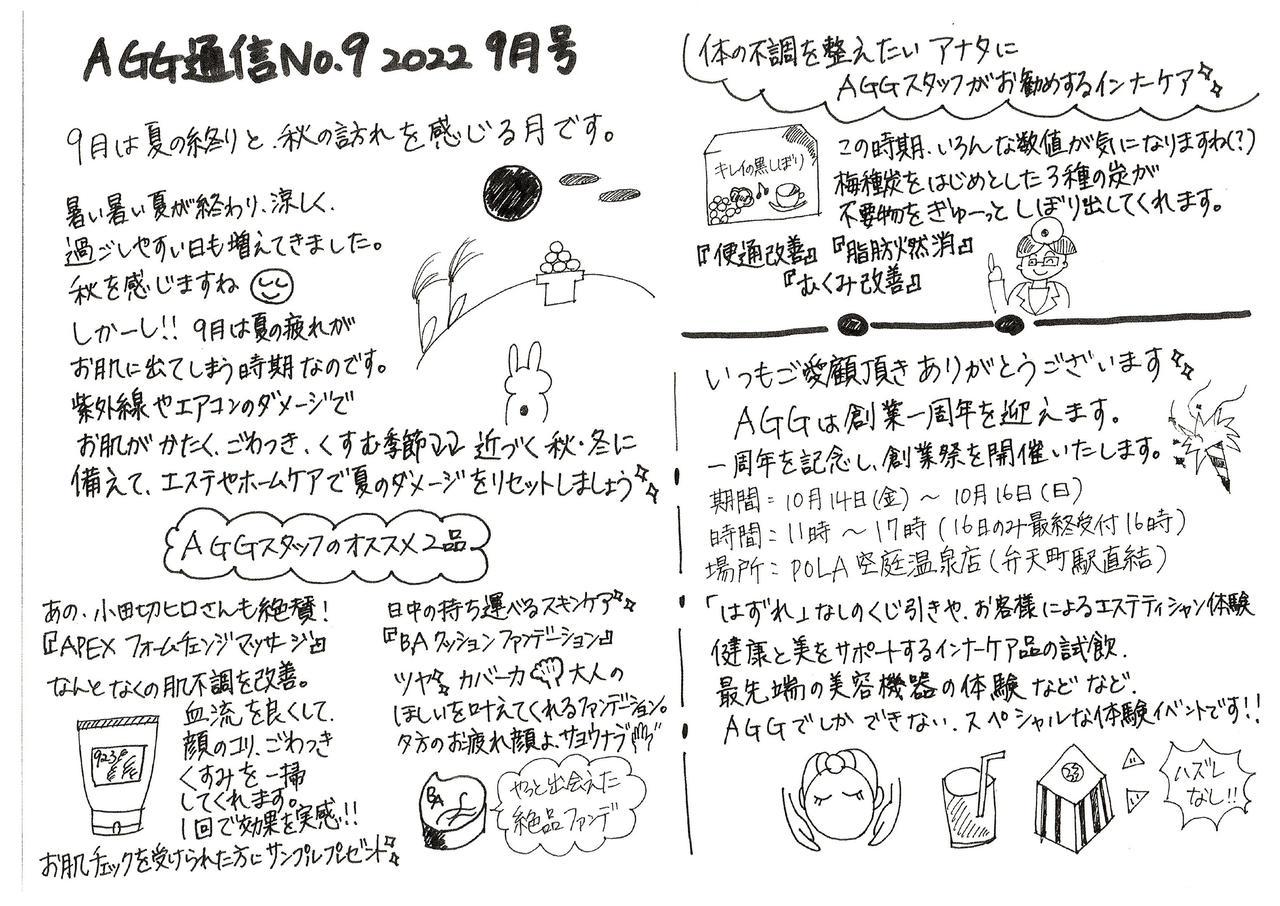 AGG通信No.9 2022 9月号
9月は夏の終りと、秋の訪れを感じる月です。
暑い暑い夏が終わり、涼しく、
過ごしやすい日も増えてきました。
秋を感じますね
しかーし!! 9月は夏の疲れが
お肌に出てしまう時期なのです。
紫外線やエアコンのダメージで
お肌がかたく、ごわつき、くすむ季節 近づく秋・冬に
備えて、エステやホームケアで夏のダメージをリセットしましょう
AGGスタッフのオススメ2品
あの、小田切ヒロさんも絶賛!
『APEX フォームチェンジマッサージ』
なんとなくの肌不調を改善。
血流を良くして、
顔のコリ、ごわつき
くすみを一掃
してくれます。
1回で効果を実感!!
お肌チェックを受けられた方にサンプルプレゼント
日中の持ち運べるスキンケア
『BAクッションファンデーション』
ツヤ カバー力 大人の
ほしいを叶えてくれるファンデーション。
夕方のお疲れ顔よ、サヨウナラ
BA
やっと出会えた
絶品ファンデ
体の不調を整えたい アナタに
AGGスタッフがお勧めするインナーケア
キレイの黒しぼり
この時期、いろんな数値が気になりますね(?)
梅種炭をはじめとした3種の炭が
不要物をぎゅーっとしぼり出してくれます。
『便通改善』『脂肪燃消』
『むくみ改善』
いつもご愛顧頂きありがとうございます
AGGは創業一周年を迎えます。
一周年を記念し、創業祭を開催いたします。
期間:10月14日(金)~10月16日(日)
時間:11時~17時(16日のみ最終受付16時)
場所:POLA空庭温泉店(弁天町駅直結)
「はずれ」なしのくじ引きや、お客様によるエステティシャン体験
健康と美をサポートするインナーケア品の試飲、
最先端の美容機器の体験などなど、
AGGでしかできない、スペシャルな体験イベントです!!
ハズレ
なし!!